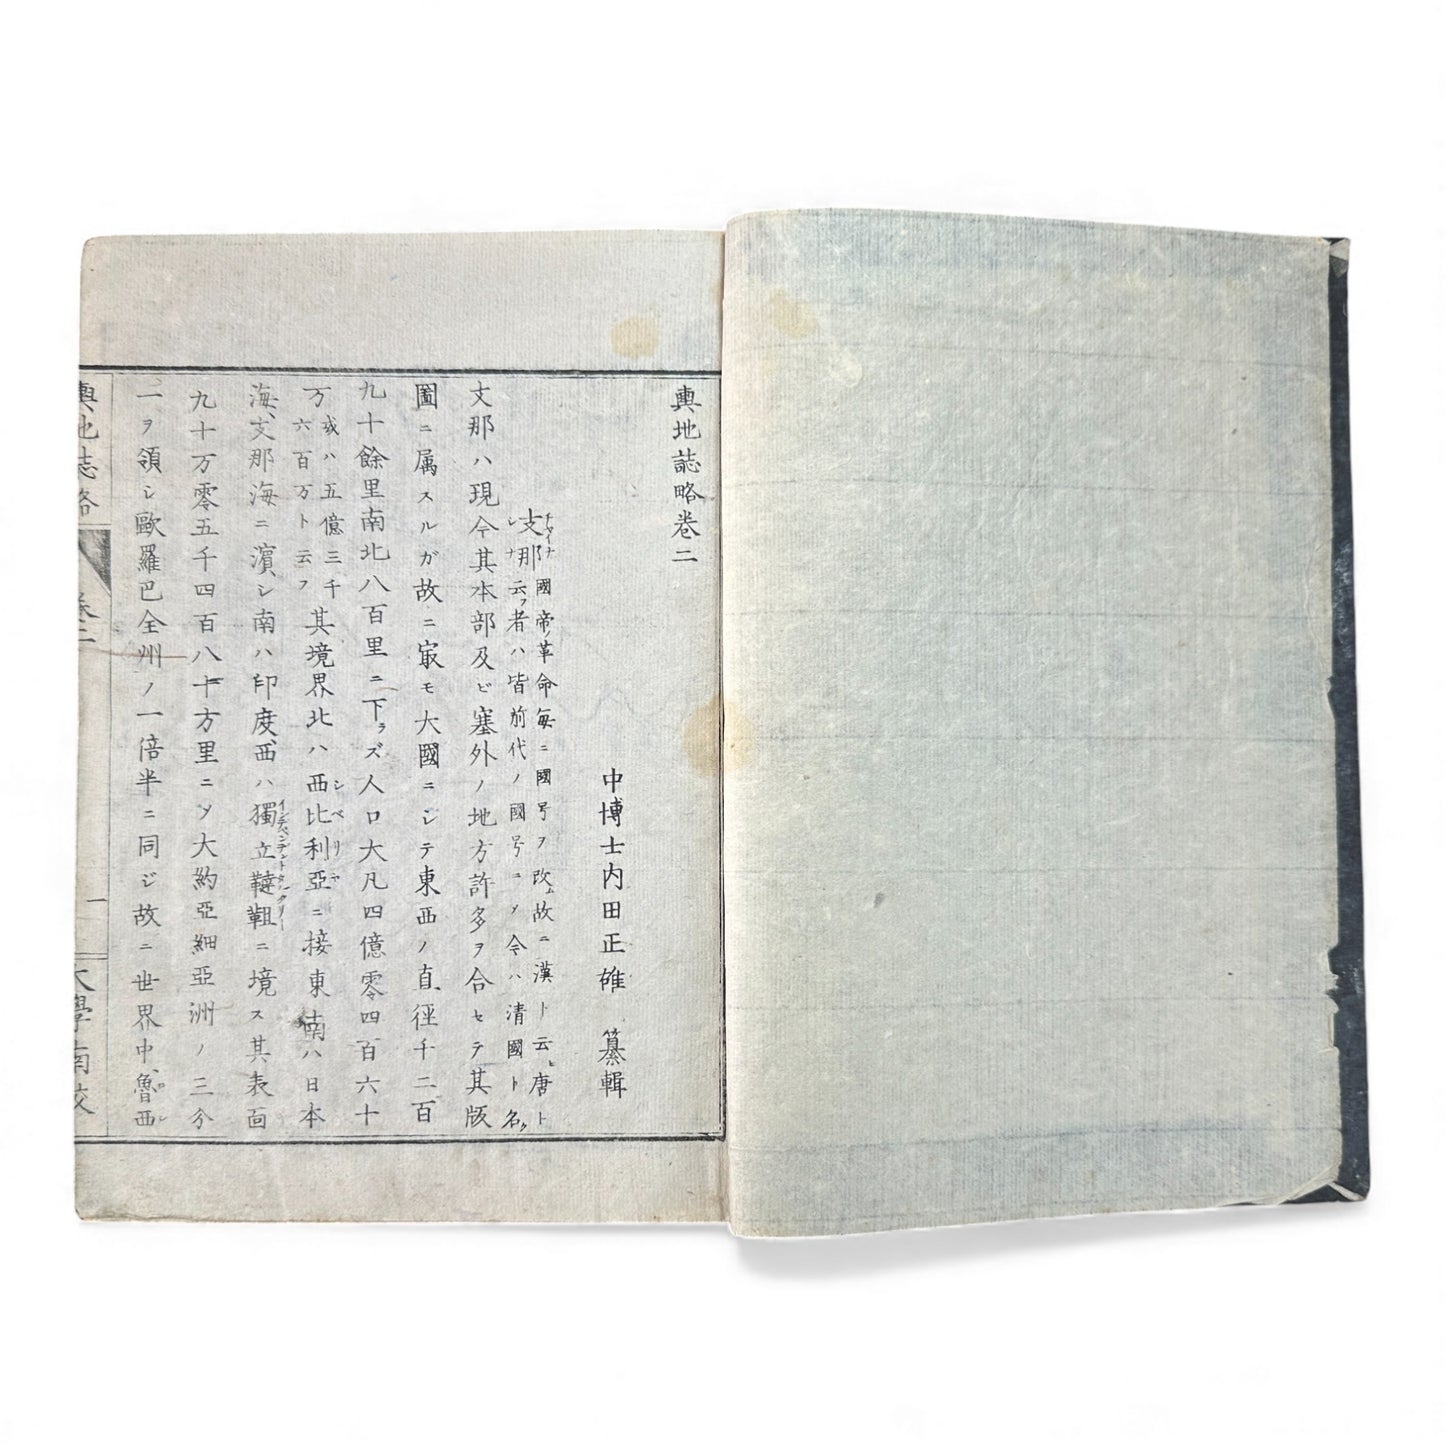 輿地誌略卷二
中博士内田正雄 纂輯
支那 國帝ノ革命毎ニ國号ヲ改ム故ニ漢ト云ヒ唐ト
云フ者ハ皆前代ノ國号ニメ今ハ清國ト名ク
チャイナ
シナ
支那ハ現今其本部及ビ塞外ノ地方許多ヲ合セテ其版
圖ニ属スルガ故ニ㝡モ大國ニシテ東西ノ直徑千二百
九十餘里南北八百里ニ下ラズ人口大凡四億零四百六十
万 或ハ五億三千
六百万ト云フ
其境界北ハ西比利亞ニ接東南ハ日本
シベリヤ
海、支那海ニ濵シ南ハ印度、西ハ獨立韃靼ニ境ス其表面
インデペンデントタルタリー
九十万零五千四百八十方里ニメ大約亞細亞洲ノ三分
二ヲ領シ歐羅巴全州ノ一倍半ニ同ジ故ニ世界中、魯西
ロシ
輿地誌略
卷二
一
大學南校